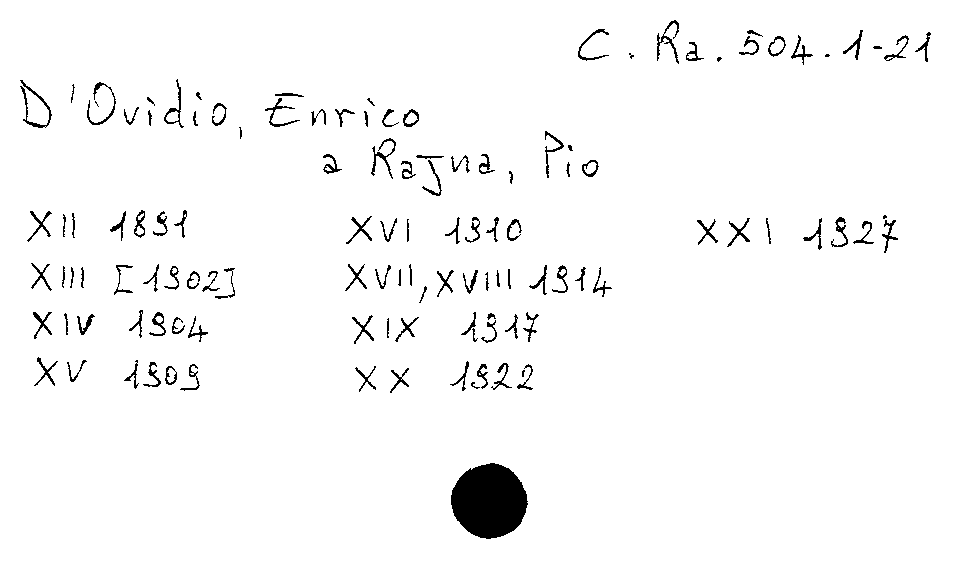 C. Ra. 504. 1-21
D'Ovidio, Enrico
a Rajna, Pio
XII 1891
XIII [1902]
XIV 1904
XV 1909
XVI 1910
XVII, XVIII 1914
XIX 1917
XX 1922
XXI 1927